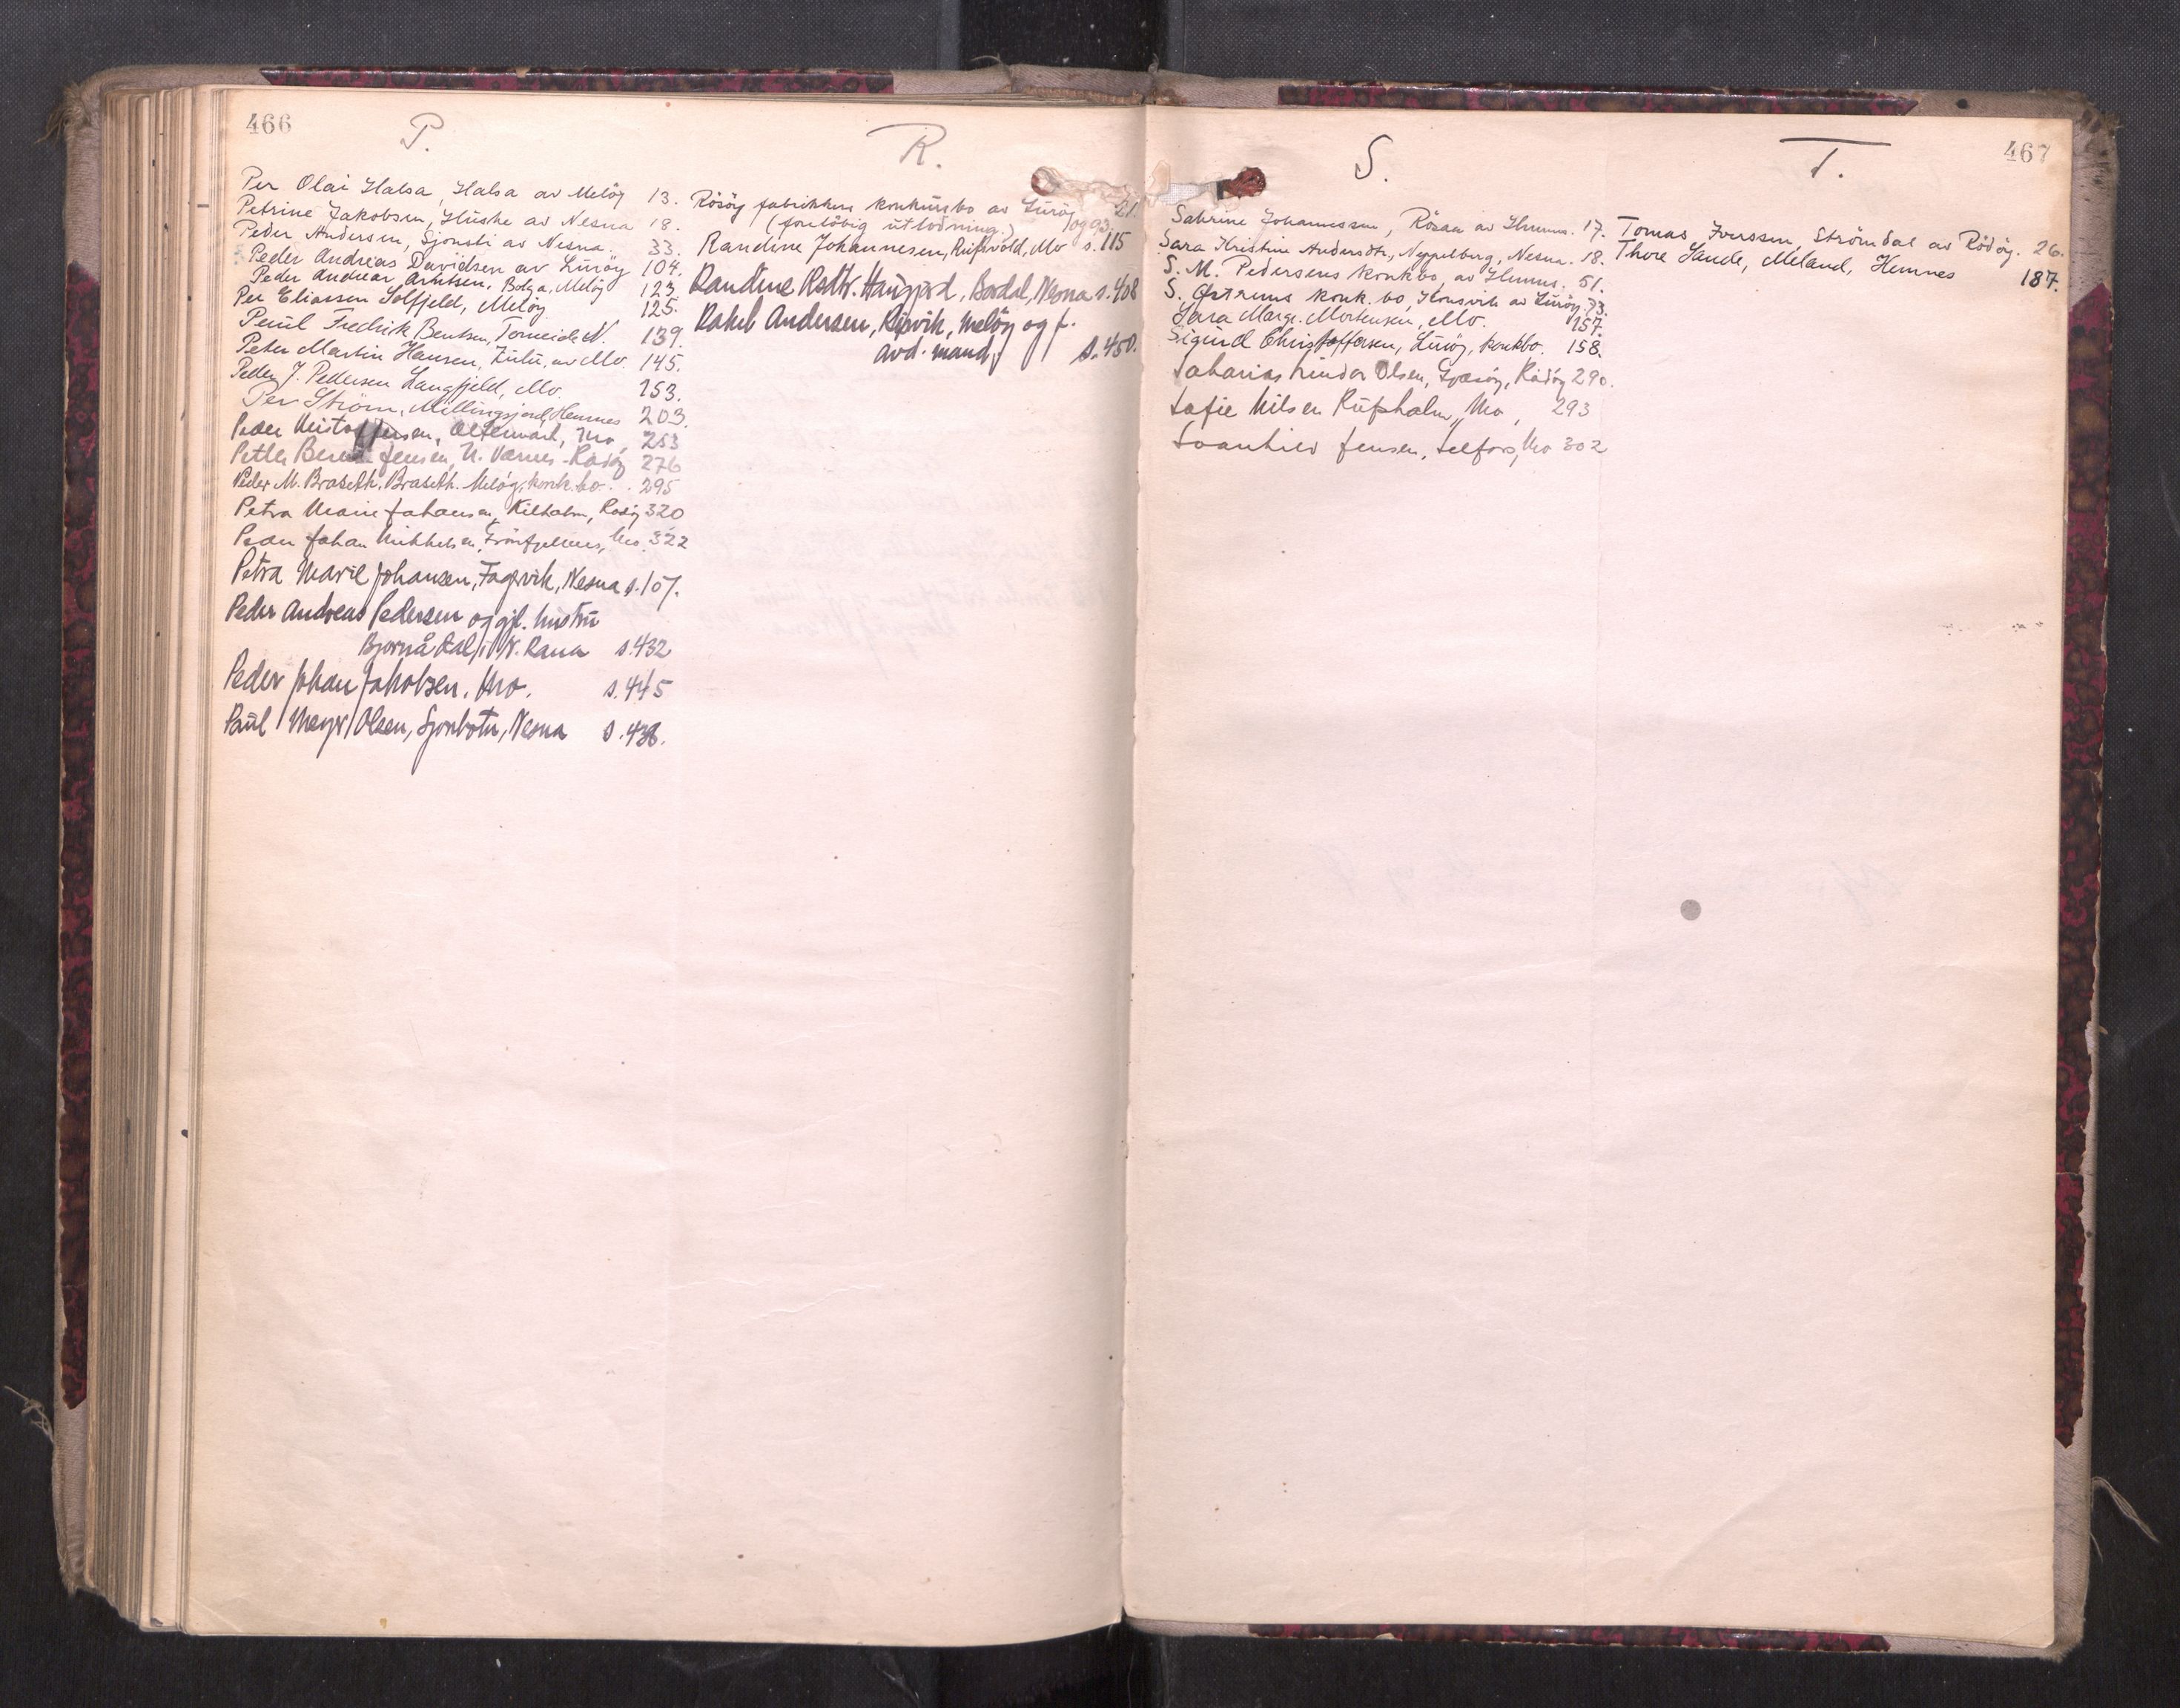 466
P.
Per Olai Halsa, Halsa av Melöy 13.
Petrine Jakobsen, Huske av Nesna 18.
Peder Andersen, Sjonsli av Nesna. 33.
Peder Andreas Davidsen av Luröy 104.
Peder Andreas Arntsen, Bolga, Melöy 123
Per Eliassen Solfjeld, Melöy 125.
Paul Fredrik Bentsen, N. 139.
Peter Martin Hansen, av Mo. 145.
Peder J. Pedersen Langfjeld, Mo. 153.
Per Ström, Millingsjord, Hemnes 203.
Peder Kristoffersen, Mo, 253
Petter Jensen, N. Værnes Rödöy 276
Peder M. Braseth, Braseth. Melöy, konk.bo. 295
Petra Marie Johansen, Kilholm, Rödöy 320
Peder Johan Mikkelsen, Mo. 322
Petra Marie Johansen, Fagervik, Nesna s.107.
Peder Andreas Pedersen og gjl. hustru
Bjørnådal i N. Rana s.432
Peder Johan Jakobsen, Mo. s.445
Paul Meyer Olsen, Sjonbotn, Nesna s.438.
R.
Rösöy fabrikkers konkursbo av Luröy 21.
(foreløbig utlodning.) og 93.
Randine Johannesen, Mo s.115
Randine Rsdtr. Haugjord, Bardal, Nesna s.408
Rakel Andersen, Melöy og f.
avd. mand, s.450.
S.
Sabrine Johannessen, Rösaa av Hemnes. 17.
Sara Kristine Andersdtr, Neppelberg, Nesna. 18.
S. M. Pedersens konkbo, av Hemnes. 51.
S. Østrems konk.bo, Konsvik av Luröy. 73.
Sara Marg. Mortensen, Mo. 157.
Sigurd Christoffersen, Luröy, konkbo. 158.
Sakarias Olsen, Gjæsöy, Rödöy 290.
Sofie Nilsen Rufsholm, Mo, 293
Svanhild Jensen, Selfors, Mo 302
467
T.
Tomas Iverssen, Strömdal av Rödöy. 26.
Thore Sande, Meland, Hemnes 187.